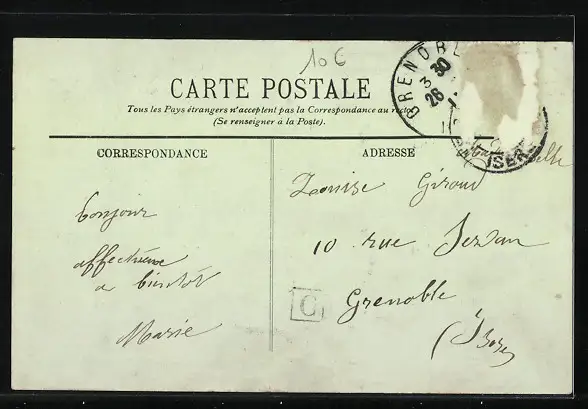 10 €
CARTE POSTALE
Tous les Pays étrangers n'acceptent pas la Correspondance au recto
(Se renseigner à la Poste).
GRENOBLE
3 30
26
ISERE
CORRESPONDANCE
ADRESSE
Louise Giroud
10 rue Servan
Grenoble
(Isère)
bonjour
affectueux
a bientôt
Marie
C